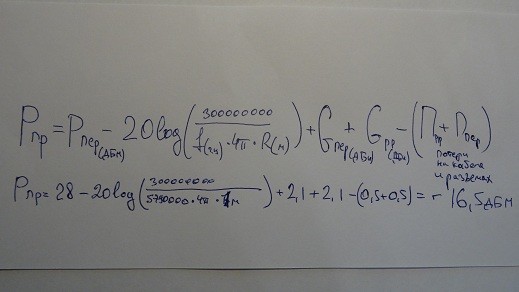 Pпр = Pпер(дБм) − 20log(300000000 / f(гц)·4π·R(м)) + Gпер(дБи) + Gпр(дби) − (Ппр + Ппер)
потери
на кабеле
и разъемах
Pпр = 28 − 20log(300000000 / 5790000·4π·1м) + 2,1 + 2,1 − (0,5+0,5) = - 16,5дБм